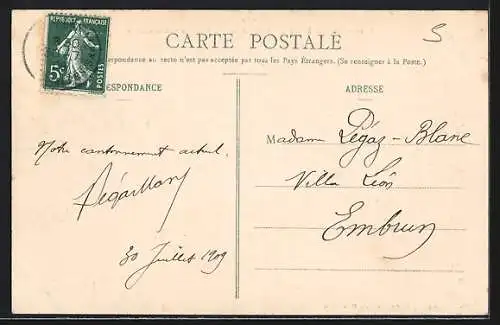 RÉPUBLIQUE FRANÇAISE
5c
POSTES
CARTE POSTALE
5
rrespondance au recto n'est pas acceptée par tous les Pays Étrangers. (Se renseigner à la Poste.)
ESPONDANCE
ADRESSE
Notre cantonnement actuel.
30 Juillet 1909
Madame Pégaz-Blanc
Villa Léon
Embrun